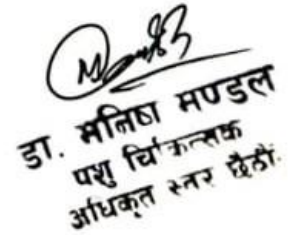 डा. मनिषा मण्डल
पशु चिकित्सक
अधिकृत स्तर छैठौं